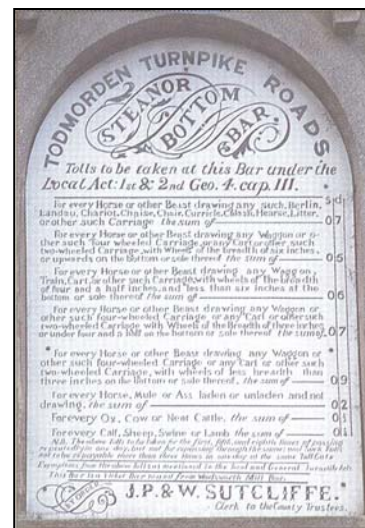 TODMORDEN TURNPIKE ROADS
STEANOR
BOTTOM
BAR.
Tolls to be taken at this Bar under the
Local Act: 1st & 2nd Geo. 4. cap. III.
s d
For every Horse or other Beast drawing any such, Berlin,
Landau, Chariot, Chaise, Chair, Curricle, Calash, Hearse, Litter,
or other such Carriage the sum of 0 7
For every Horse or other Beast drawing any Waggon or o-
ther such four wheeled Carriage, or any Cart or other such
two-wheeled Carriage, with Wheels of the breadth of six inches,
or upwards on the bottom or sole thereof the sum of 0 5
For every Horse or other Beast drawing any Waggon,
Train, Cart, or other such Carriage, with wheels of the breadth
of four and a half inches, and less than six inches at the
bottom or sole thereof the sum of 0 6
For every Horse or other Beast drawing any Waggon or
other such four-wheeled Carriage or any Cart or other such
two-wheeled Carriage with Wheels of the Breadth of three inches
or under four and a half on the bottom or sole thereof the sum of 0 7
For every Horse or other Beast drawing any Waggon or
other such four-wheeled Carriage or any Cart or other such
two-wheeled Carriage, with wheels of less breadth than
three inches on the bottom or sole thereof, the sum of 0 9
For every Horse, Mule or Ass laden or unladen and not
drawing, the sum of 0 2
For every Ox, Cow or Neat Cattle, the sum of
For every Calf, Sheep, Swine or Lamb the sum of
N.B. The above tolls to be taken for the first, and times of passing
in any day, but not for repassing through the same; nor
not to be payable more than three times in one day at the same Toll Gate
Exemptions from the above tolls as mentioned in the local and General Turnpike
This Bar
BY ORDER
J.P. & W. SUTCLIFFE.
Clerk to the County Trustees.